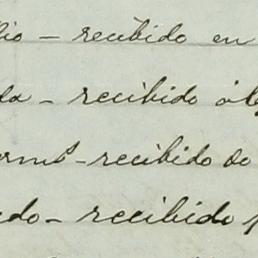 lio - recibido en
da - recibido
- recibido do
do - recibido